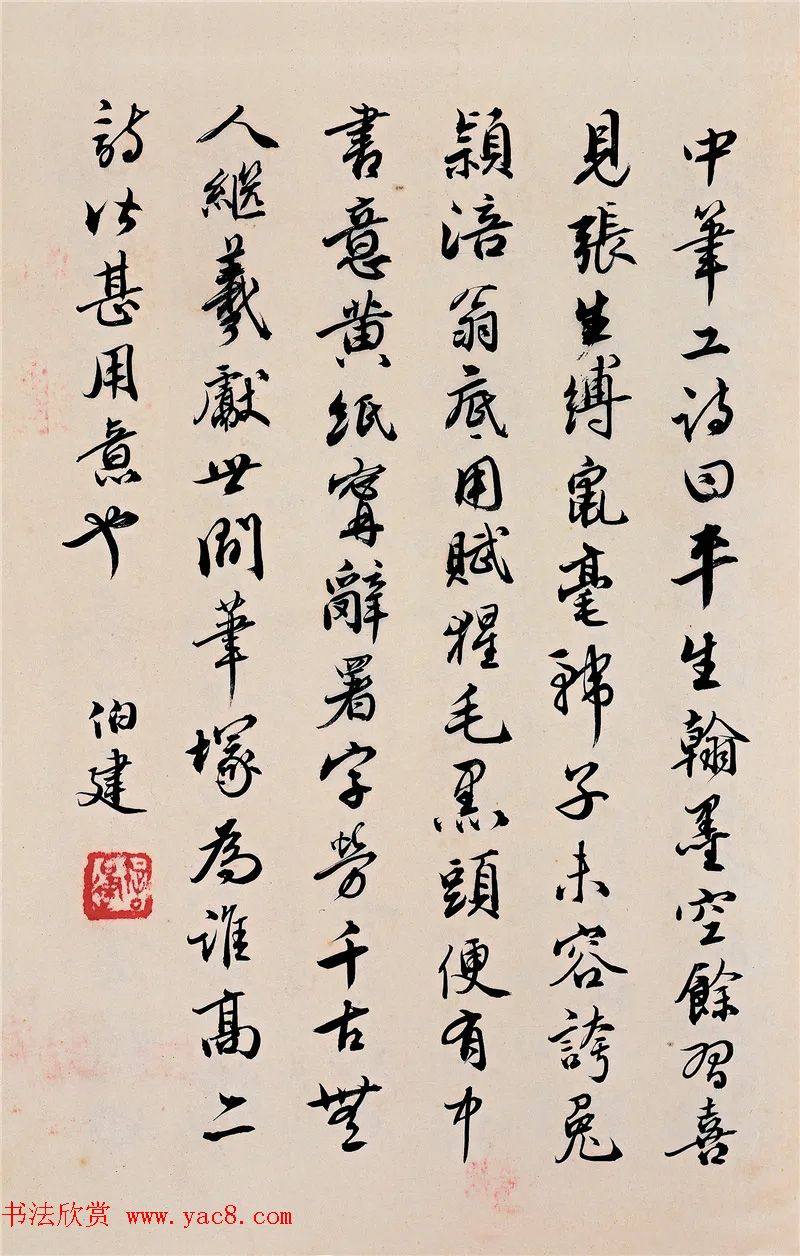 中筆工詩曰平生翰墨空餘習喜
見張生縛鼠毫穉子未容誇兔
穎涪翁底用賦猩毛黑頭便有中
書意黄紙寧辭署字勞千古無
人繼羲獻世間筆塚為誰高二
詩皆甚用意也
伯建
书法欣赏 www.yac8.com